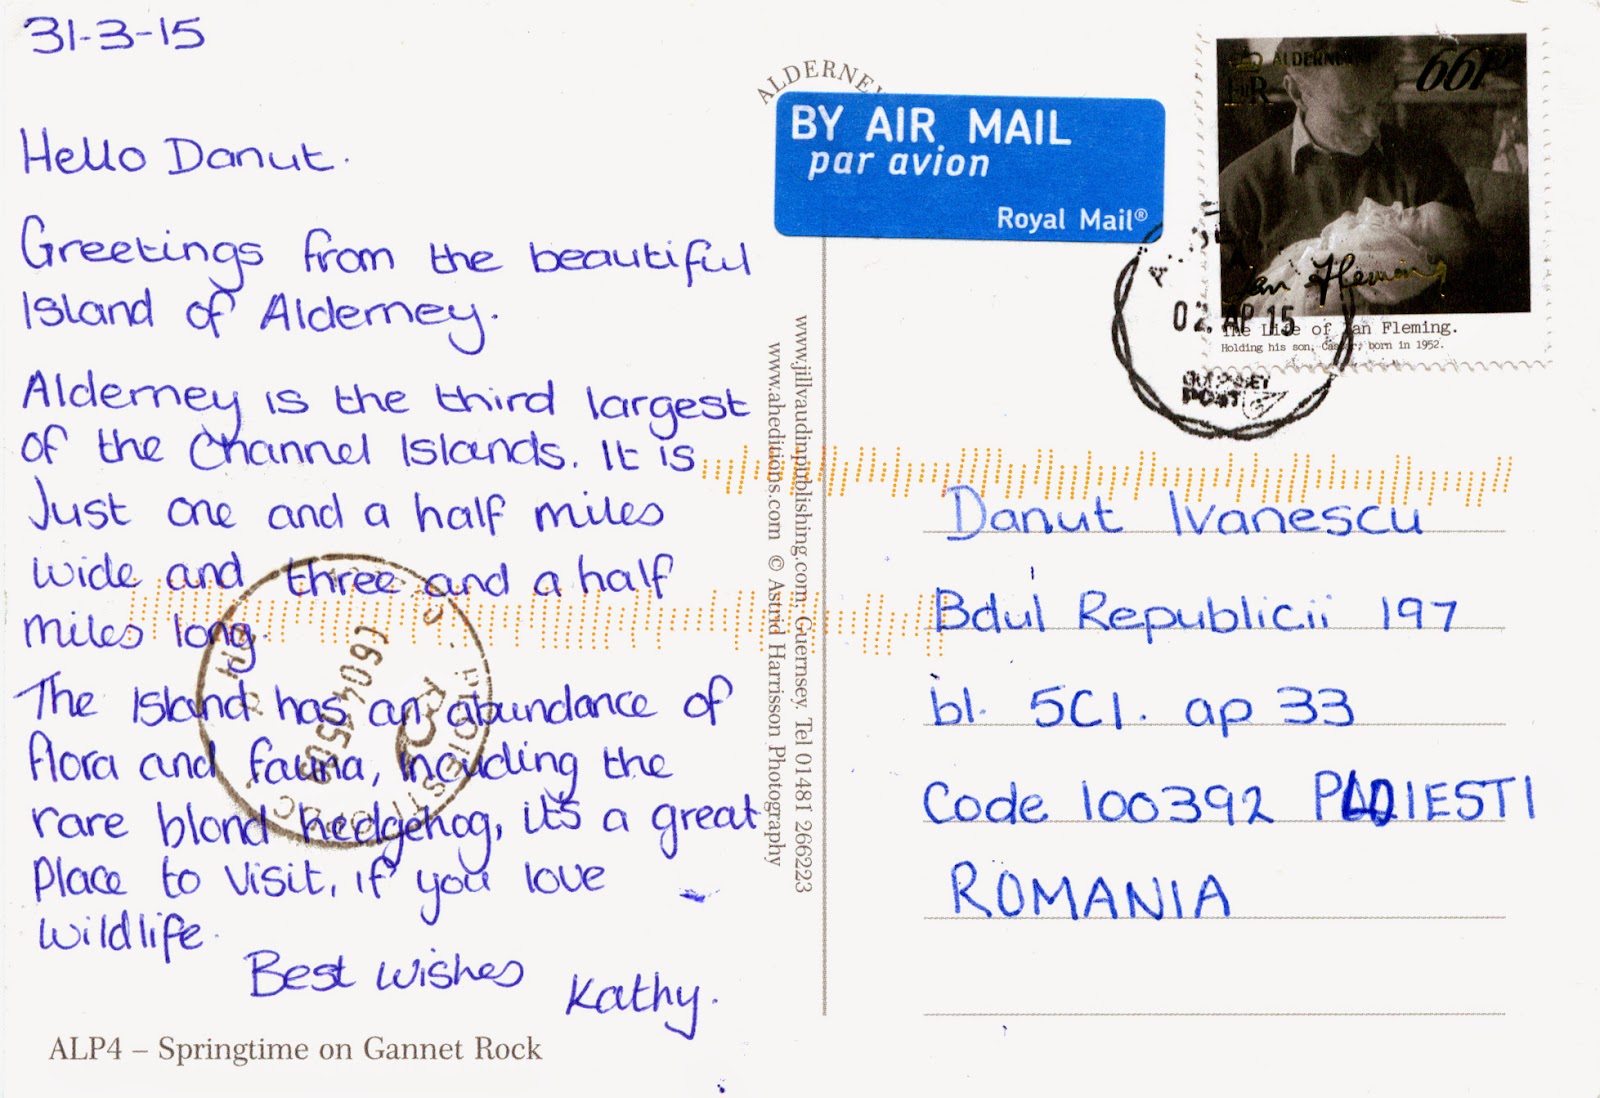 31-3-15
Hello Danut.
Greetings from the beautiful
Island of Alderney.
Alderney is the third largest
of the Channel Islands. It is
Just one and a half miles
wide and three and a half
miles long.
The Island has an abundance of
flora and fauna, incuding the
rare blond hedgehog, it's a great
place to visit, if you love
wildlife.
Best wishes
Kathy.
ALP4 – Springtime on Gannet Rock
ALDERNEY
BY AIR MAIL
par avion
Royal Mail®
www.jillvaudinpublishing.com, Guernsey. Tel 01481 266223
www.aheditions.com © Astrid Harrisson Photography
ALDERNEY
66P
Ian Fleming
The Life of Ian Fleming.
Holding his son, Caspar, born in 1952.
02. AP 15
GUERNSEY
POST
Danut Ivanescu
Bdul Republicii 197
bl. 5C1. ap 33
Code 100392 PLOIESTI
ROMANIA